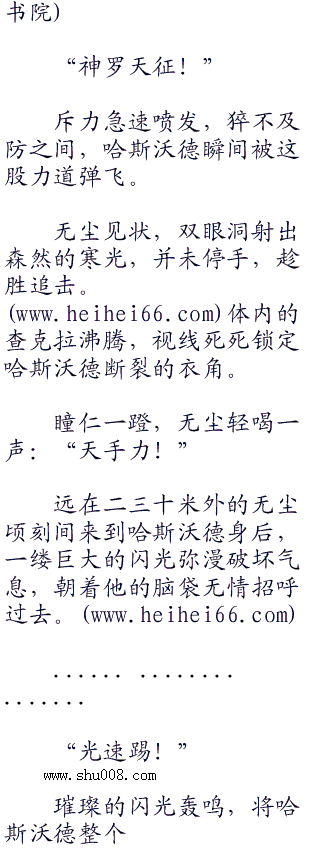 书院)
“神罗天征！”
斥力急速喷发，猝不及
防之间，哈斯沃德瞬间被这
股力道弹飞。
无尘见状，双眼洞射出
森然的寒光，并未停手，趁
胜追击。
(www.heihei66.com)体内的
查克拉沸腾，视线死死锁定
哈斯沃德断裂的衣角。
瞳仁一蹬，无尘轻喝一
声：“天手力！”
远在二三十米外的无尘
顷刻间来到哈斯沃德身后，
一缕巨大的闪光弥漫破坏气
息，朝着他的脑袋无情招呼
过去。(www.heihei66.com)
...... ........
.......
“光速踢！”
www.shu008.com
璀璨的闪光轰鸣，将哈
斯沃德整个